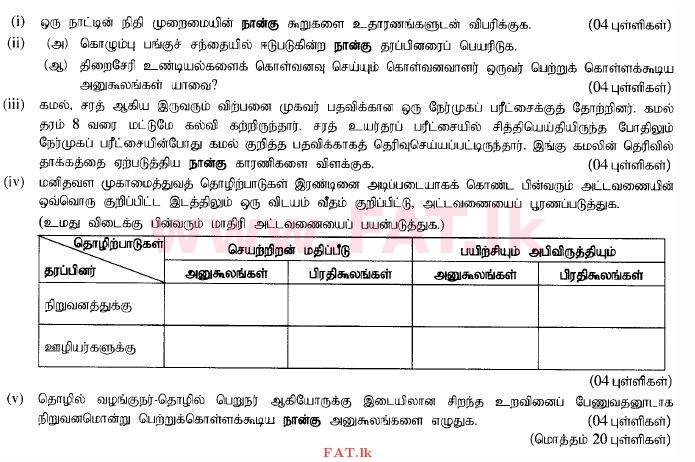 (i) ஒரு நாட்டின் நிதி முறைமையின் நான்கு கூறுகளை உதாரணங்களுடன் விபரிக்குக. (04 புள்ளிகள்)
(ii) (அ) கொழும்பு பங்குச் சந்தையில் ஈடுபடுகின்ற நான்கு தரப்பினரைப் பெயரிடுக.
(ஆ) திறைசேரி உண்டியல்களைக் கொள்வனவு செய்யும் கொள்வனவாளர் ஒருவர் பெற்றுக் கொள்ளக்கூடிய
அனுகூலங்கள் யாவை? (04 புள்ளிகள்)
(iii) கமல், சரத் ஆகிய இருவரும் விற்பனை முகவர் பதவிக்கான ஒரு நேர்முகப் பரீட்சைக்குத் தோற்றினர். கமல்
தரம் 8 வரை மட்டுமே கல்வி கற்றிருந்தார். சரத் உயர்தரப் பரீட்சையில் சித்தியெய்தியிருந்த போதிலும்
நேர்முகப் பரீட்சையின்போது கமல் குறித்த பதவிக்காகத் தெரிவுசெய்யப்பட்டிருந்தார். இங்கு கமலின் தெரிவில்
தாக்கத்தை ஏற்படுத்திய நான்கு காரணிகளை விளக்குக. (04 புள்ளிகள்)
(iv) மனிதவள முகாமைத்துவத் தொழிற்பாடுகள் இரண்டினை அடிப்படையாகக் கொண்ட பின்வரும் அட்டவணையின்
ஒவ்வொரு குறிப்பிட்ட இடத்திலும் ஒரு விடயம் வீதம் குறிப்பிட்டு, அட்டவணையைப் பூரணப்படுத்துக.
(உமது விடைக்கு பின்வரும் மாதிரி அட்டவணையைப் பயன்படுத்துக.)
www.FAT.lk
தொழிற்பாடுகள் செயற்றிறன் மதிப்பீடு பயிற்சியும் அபிவிருத்தியும்
தரப்பினர் அனுகூலங்கள் பிரதிகூலங்கள் அனுகூலங்கள் பிரதிகூலங்கள்
நிறுவனத்துக்கு
ஊழியர்களுக்கு
(04 புள்ளிகள்)
(v) தொழில் வழங்குநர்-தொழில் பெறுநர் ஆகியோருக்கு இடையிலான சிறந்த உறவினைப் பேணுவதனூடாக
நிறுவனமொன்று பெற்றுக்கொள்ளக்கூடிய நான்கு அனுகூலங்களை எழுதுக. (04 புள்ளிகள்)
(மொத்தம் 20 புள்ளிகள்)
FAT.lk